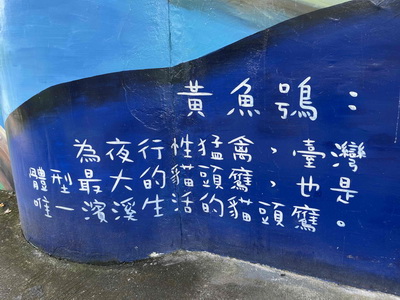 黃魚鴞：
為夜行性猛禽，臺灣
體型最大的貓頭鷹，也是
唯一濱溪生活的貓頭鷹。